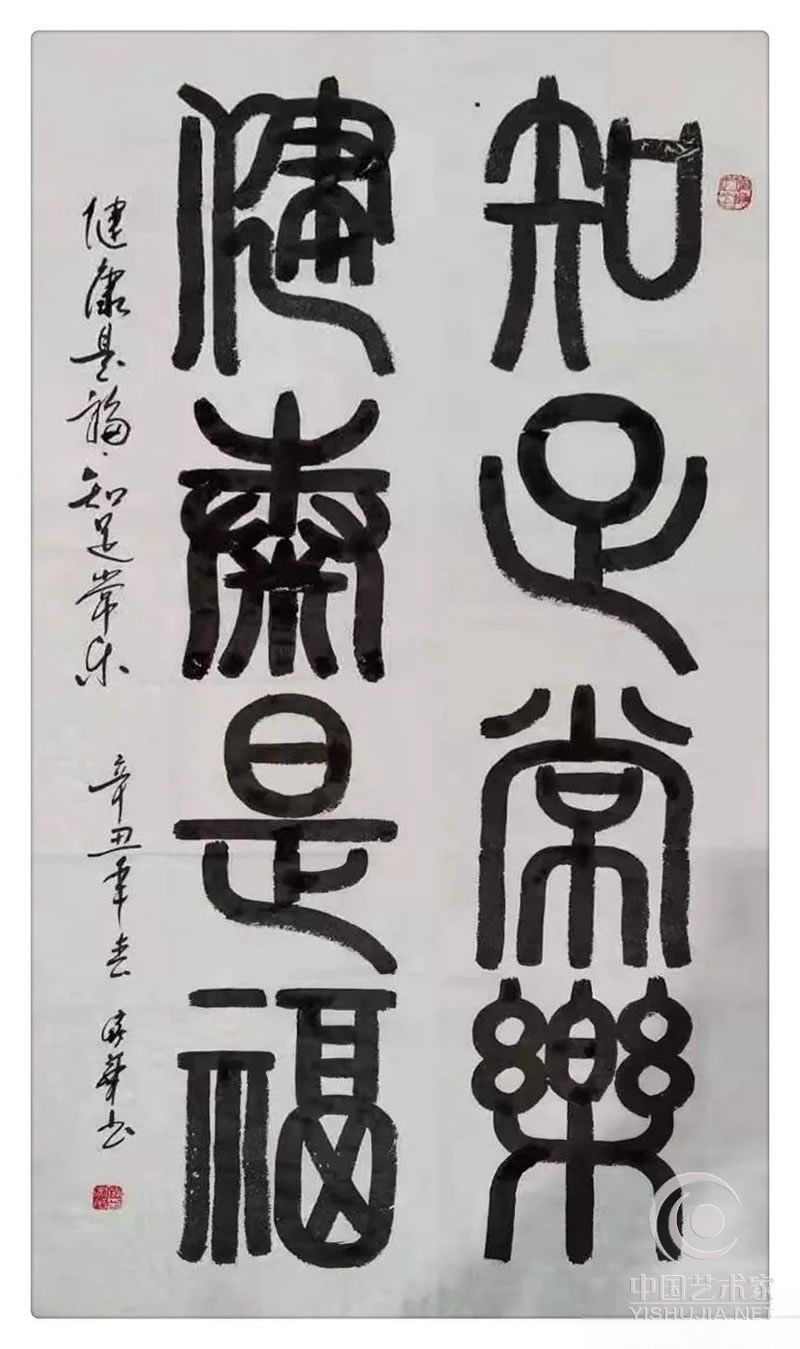 知足常樂
健康是福
健康是福、知足常乐 辛丑年春 华书
中国艺术家
YISHUJIA.NET